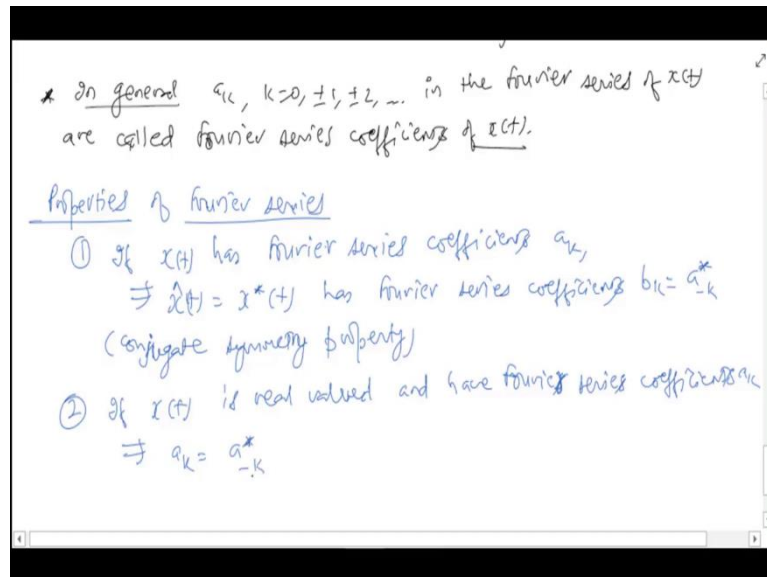 * In general a_k, k=0, ±1, ±2, ... in the fourier series of x(t)
are called fourier series coefficients of x(t).
Properties of fourier series
① If x(t) has fourier series coefficients a_k,
⇒ x̂(t) = x*(t) has fourier series coefficients b_k = a*_{-k}
(conjugate symmetry property)
② If x(t) is real valued and have fourier series coefficients a_k
⇒ a_k = a*_{-k}